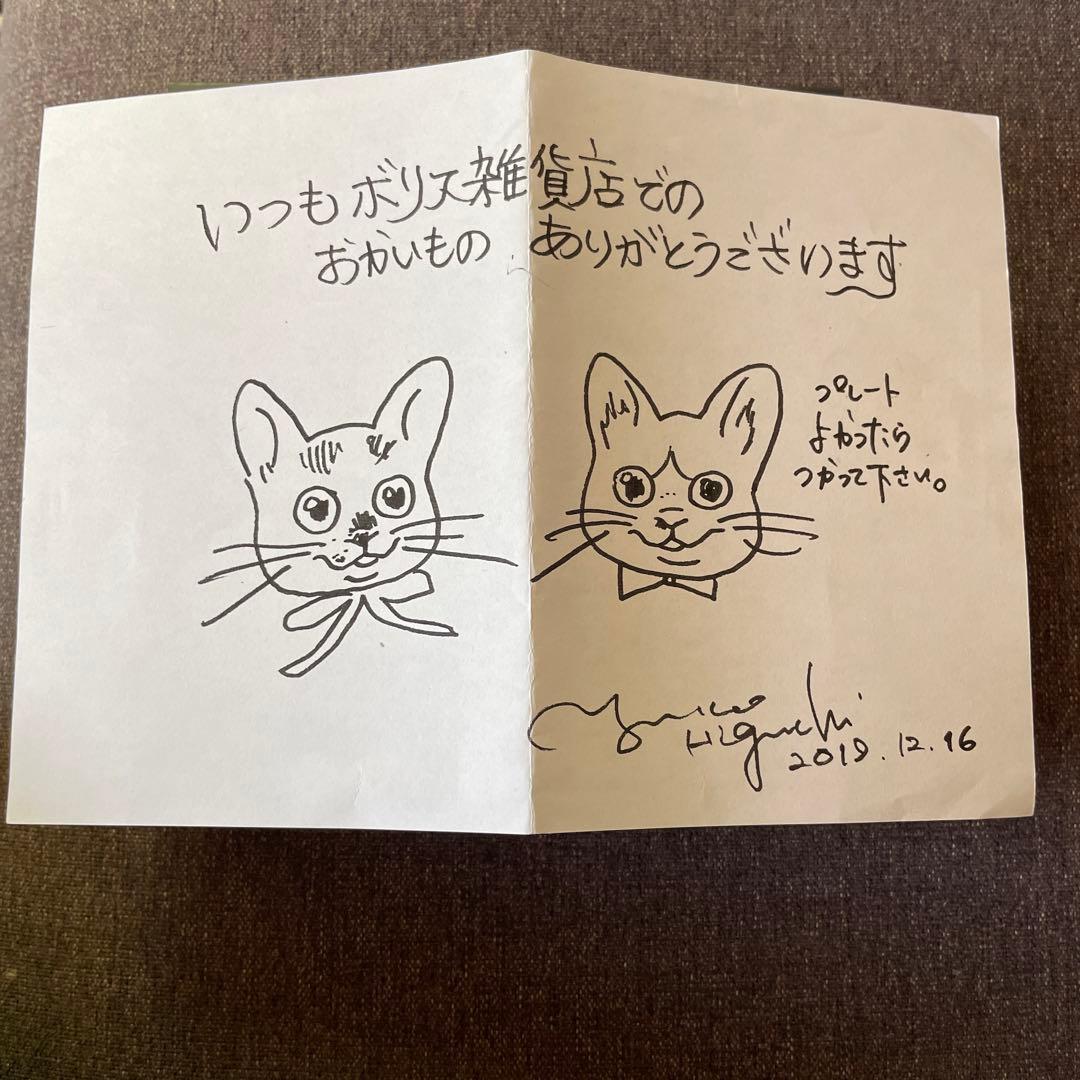 いつもボリス雑貨店での
おかいもの ありがとうございます
プレート
よかったら
つかって下さい。
Yuko
Higuchi
2019.12.16